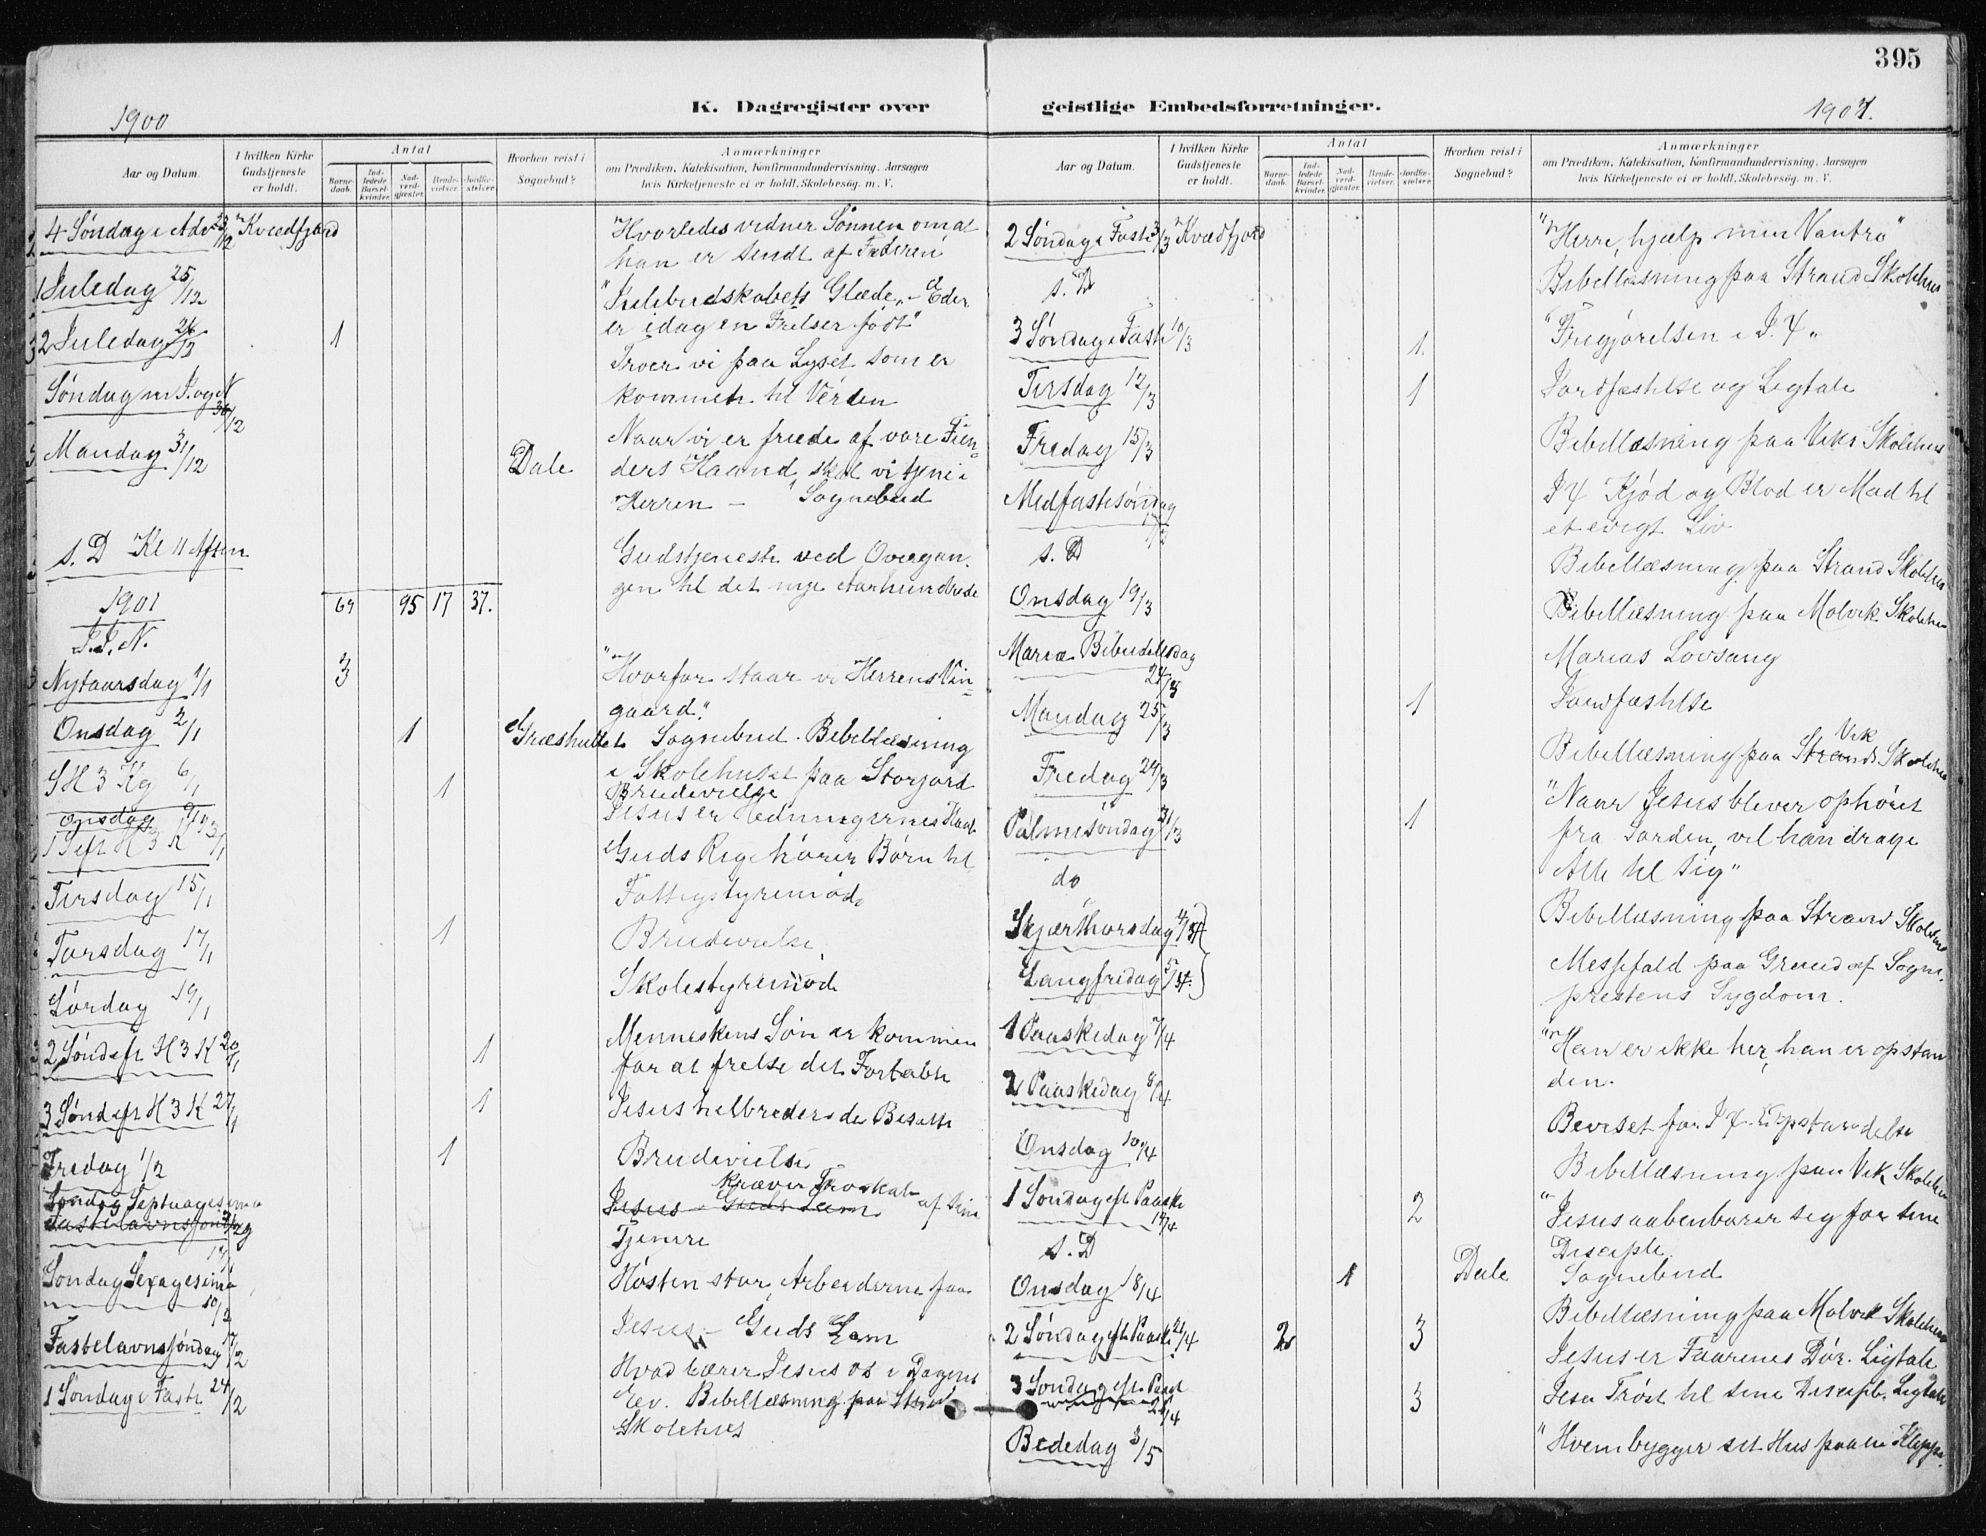 395
K. Dagregister over geistlige Embedsforretninger.
1900
1901.
Aar og Datum.
I hvilken Kirke Gudstjeneste er holdt.
Antal
Barnedaab.
Indledede Barselkvinder.
Nadverdgjester.
Brudevielser.
Jordfæstelser.
Hvorhen reist i Sognebud?
Anmærkninger
om Prædiken, Katekisation, Konfirmandundervisning. Aarsagen
hvis Kirketjeneste ei er holdt. Skolebesøg. m. V.
4 Søndag i Adv 23/12 Kvædfjord "Hvorledes vidner Sønnen om at
han er sendt af Faderen
1 Juledag 25/12 "Julebudskabets Glæde" – Eder
er idag en Frelser født"
2 Juledag 26/12 1 Troer vi paa Lyset som er
kommet til Verden
Søndag m J. og N 30/12 Naar vi er friede af vore Fien-
ders Haand, skal vi tjene
Herren –
Mandag 31/12 Dale Sognebud
s. D Kl 11 Aften Gudstjeneste ved Overgan-
gen til det nye Aarhundrede
69 95 17 37.
1901
I. J. N.
Nytaarsdag 1/1 3 "Hvorfor staar vi i Herrens Vin-
gaard."
Onsdag 2/1 1 Græsholtet Sognebud. Bibellæsning
i Skolehuset paa Storjord
Onsdag 9/1
SH 3 Kg 6/1 1 Brudevielse
Jesus er Hedningernes Haab
1 S eft H 3 K 13/1 Guds Rige hører Børn til
Tirsdag 15/1 Fattigstyremøde
Torsdag 17/1 1 Brudevielse
Lørdag 19/1 Skolestyremøde
2 Sønd eft H 3 K 20/1 1 Menneskens Søn er kommen
for at frelse det Fortabte
3 Sønd eft H 3 K 27/1 1 Jesus helbreder de Besatte
Fredag 1/2 1 Brudevielse
Søndag Septuagesima
Fastelavnssøndag
Jesus Guds Lam
kræver Troskab af sine
Tjenere
Søndag Sexagesima 10/2 Høsten stor, Arbeiderne faa
Fastelavnssøndag 17/2 Jesus – Guds Lam
1 Søndag i Faste 24/2 Hvad lærer Jesus os i Dagens
Ev. Bibellæsning paa Strand
Skolehus
2 Søndag i Faste 3/3 Kvædfjord "Herre, hjælp min Vantro"
s. D Bibellæsning paa Strand Skolehus
3 Søndag i Faste 10/3 1. "Frigjørelsen i J. X"
Tirsdag 12/3 1 Jordfæstelse og Ligtale
Fredag 15/3 Bibellæsning paa Viks Skolehus
Midfastesøndag 17/3 J X Kjød og Blod er Mad til
et evigt Liv
s. D Bibellæsning paa Strand Skolehus
Onsdag 19/3 Bibellæsning paa Molvik Skolehus
Mariæ Bebudelsesdag 24/3 Marias Lovsang
Mandag 25/3 1 Jordfæstelse
Fredag 29/3 Bibellæsning paa Strands Vik Skolehus
Palmesøndag 31/3 1 "Naar Jesus bliver ophøiet
fra Jorden, vil han drage
Alle til sig"
do Bibellæsning paa Strand Skolehus
Skjærthorsdag 4/4
Langfredag 5/4 Messefald paa Grund af Sogne-
prestens Sygdom.
1 Paaskedag 7/4 "Han er ikke her, han er opstan
den.
2 Paaskedag 8/4 Beviset for J X Opstandelse
Onsdag 10/4 Bibellæsning paa Vik Skolehus
1 Søndag eft Paaske 14/4 2 "Jesus aabenbarer sig for sine
Disciple.
s. D 1 Dale Sognebud
Onsdag 18/4 Bibellæsning paa Molvik Skolehus
2 Søndag eft Paaske 21/4 2 3 Jesus er Faarenes Dør. Ligtale
3 Søndag eft. Paask 28/4 3 Jesu Trøst til sine Discipl. Ligtale
Bededag 3/5 "Hvem bygger sit Hus paa en Klippe.